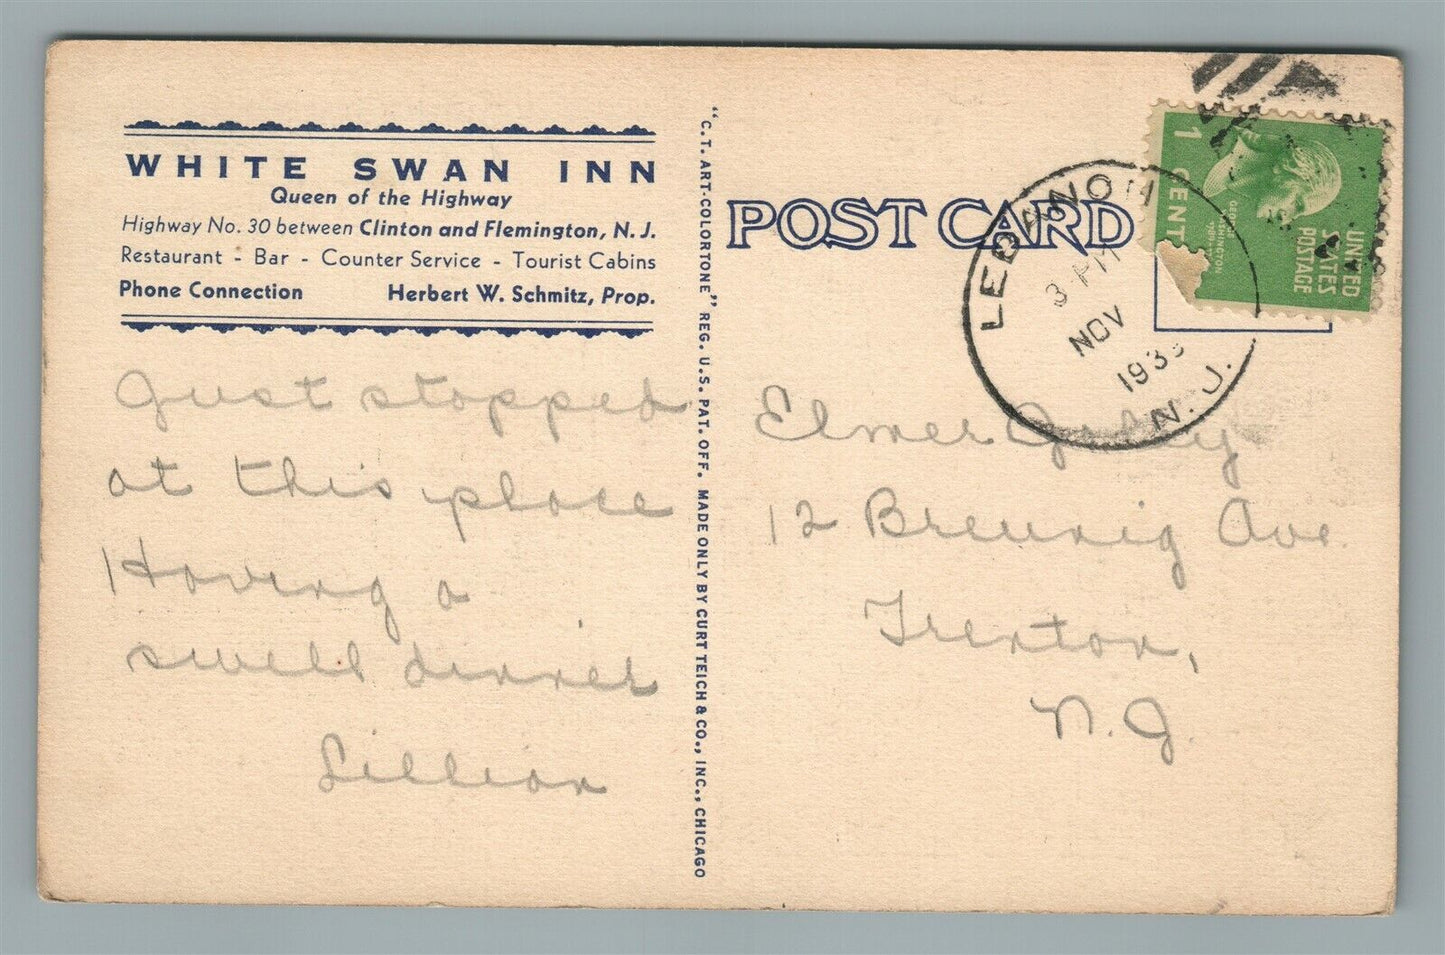 WHITE SWAN INN
Queen of the Highway
Highway No. 30 between Clinton and Flemington, N. J.
Restaurant - Bar - Counter Service - Tourist Cabins
Phone Connection Herbert W. Schmitz, Prop.
Just stopped
at this place
Having a
swell dinner
Lillian
"C. T. ART-COLORTONE" REG. U. S. PAT. OFF. MADE ONLY BY CURT TEICH & CO., INC., CHICAGO
POST CARD
LEBANON
3 PM
NOV
N. J.
1 CENT
GEORGE WASHINGTON
UNITED
STATES
POSTAGE
Elmer
12 Breunig Ave.
Trenton,
N. J.